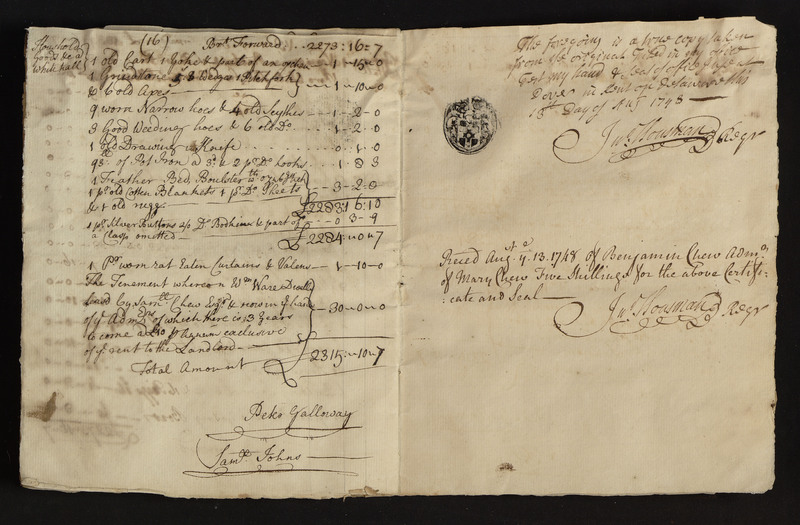 Houshold
Goods &c a
White hall
(16) Brt Forward 2273:16=7
1 old Cart 1 Yoke & part of an 1-15-0
1 Grindstone 3 Wedges 1 Pitchfork
& 6 old Axes 1-10-0
9 worn Narrow hoes & 4 old Scythes 1-2-0
3 Good Weeding hoes & 6 old Do 1-2-0
1 old Drawing Knife 0-1-0
of Pot Iron a 3d & 2 pr Do hooks 1
1 Feather Bed Boulster
1 pr old Cotten Blankets 1 pr Do Sheets 3-2-0
& 1 old rugg 2283:16:10
1 pr Silver Buttons a/o Do Bodkins & part of 0 3-9
a Clasp omitted £2284-0-7
1 Pr worn eat Curtains & Valens 1-10-0
The Tenement whereon Wm Ware Dwells
Saml Chew Esqr & now in ye hands 30-0-0
of ye Admrs of which there is 13 Years
to come a £10 p annum exclusive
of ye rent to the Landlord
Total Amount £2315-10-7
Peter Galloway
Saml Johns
The foregoing is a true copy taken
from the original filed in my office
Test my hand & Seal of office at
Dover in Kent on Delaware this
13th Day of Augt 1748
Jno Housman D Regr
Reced Augst ye 13. 1748 of Benjamin Chew Admr
of Mary Chew Five Shillings for the above Certifi-
cate and Seal
Jno Housman D Regr